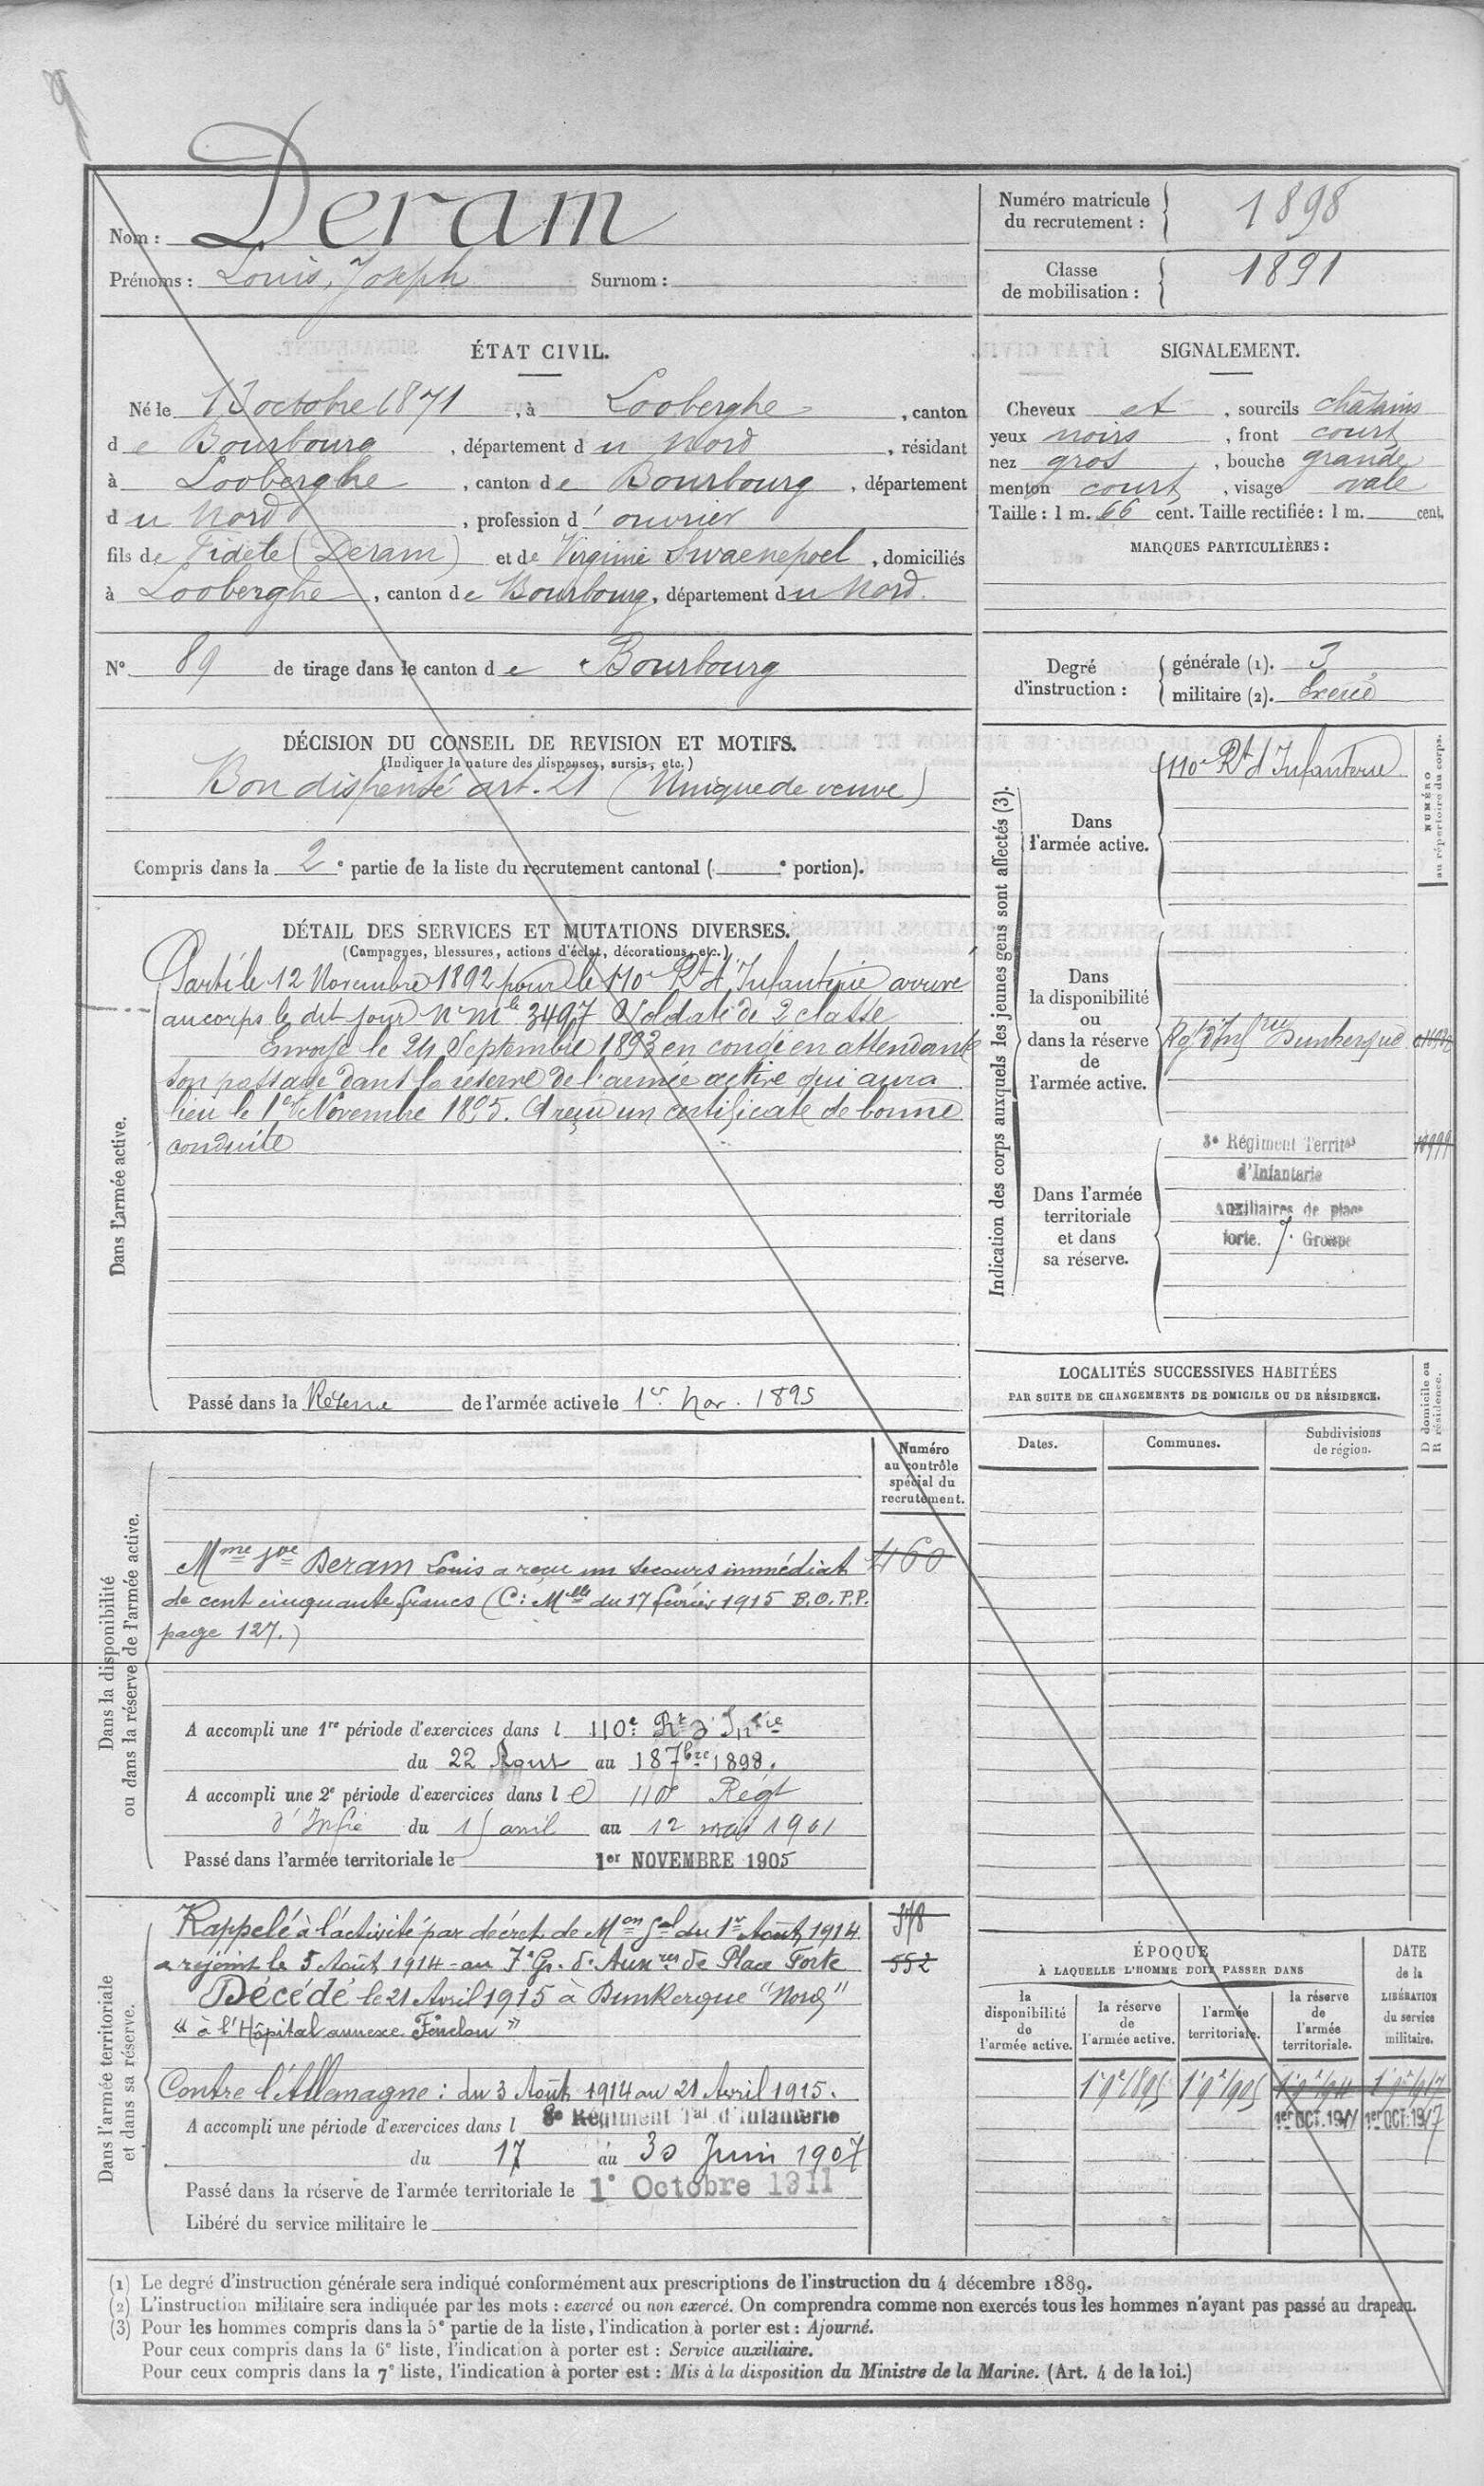 Nom : Deram
Prénoms : Louis, Joseph Surnom :
Numéro matricule du recrutement : 1898
Classe de mobilisation : 1891
ÉTAT CIVIL.
Né le 13 octobre 1871, à Looberghe, canton
de Bourbourg, département du Nord, résidant
à Looberghe, canton de Bourbourg, département
du Nord, profession d'ouvrier
fils de Fidèle (Deram) et de Virginie Swaenepoel, domiciliés
à Looberghe, canton de Bourbourg, département du Nord.
SIGNALEMENT.
Cheveux et, sourcils chatains
yeux noirs, front court
nez gros, bouche grande
menton court, visage ovale
Taille : 1 m. 66 cent. Taille rectifiée : 1 m. cent.
MARQUES PARTICULIÈRES :
N° 89 de tirage dans le canton de Bourbourg
Degré d'instruction : générale (1). 3
militaire (2). Exercé
DÉCISION DU CONSEIL DE REVISION ET MOTIFS.
(Indiquer la nature des dispenses, sursis, etc.)
Bon dispensé art. 21 (Unique de veuve)
Compris dans la 2e partie de la liste du recrutement cantonal ( e portion).
DÉTAIL DES SERVICES ET MUTATIONS DIVERSES.
(Campagnes, blessures, actions d'éclat, décorations, etc.)
Dans l'armée active.
Parti le 12 Novembre 1892 pour le 110e Rt d'Infanterie arrivé
au corps le dit jour n° mle 3497 Soldat de 2 classe
Envoyé le 24 Septembre 1893 en congé en attendant
son passage dans la réserve de l'armée active qui aura
lieu le 1er Novembre 1895. A reçu un certificat de bonne
conduite
Passé dans la Réserve de l'armée active le 1er Nov. 1895
Indication des corps auxquels les jeunes gens sont affectés (3).
NUMÉRO au répertoire du corps.
Dans l'armée active.
110e Rt d'Infanterie
Dans la disponibilité ou dans la réserve de l'armée active.
Rgt d'Infrie Dunkerque
Dans l'armée territoriale et dans sa réserve.
8e Régiment Territal
d'Infanterie
Auxiliaires de place
forte. 7e Groupe
LOCALITÉS SUCCESSIVES HABITÉES
PAR SUITE DE CHANGEMENTS DE DOMICILE OU DE RÉSIDENCE.
Dates. Communes. Subdivisions de région. D domicile ou R résidence.
Dans la disponibilité ou dans la réserve de l'armée active.
Numéro au contrôle spécial du recrutement.
460
Mme Vve Deram Louis a reçu un secours immédiat
de cent cinquante francs (C: Mlle du 17 février 1915 B.O.P.P.
page 127.)
A accompli une 1re période d'exercices dans l 110e Rt d'Inftie
du 22 Aout au 18 7bre 1898.
A accompli une 2e période d'exercices dans le 110e Régt
d'Infie du 15 avril au 12 mai 1901
Passé dans l'armée territoriale le 1er NOVEMBRE 1905
Dans l'armée territoriale et dans sa réserve.
Rappelé à l'activité par décret de Mon Gal du 1er Août 1914
a rejoint le 3 Août 1914 au 7e Gr. d'Auxres de Place Forte
552
Décédé le 21 Avril 1915 à Dunkerque "Nord"
"à l'Hôpital annexe Fénelon"
Contre l'Allemagne : du 3 Août 1914 au 21 Avril 1915.
A accompli une période d'exercices dans l 8e Régiment Tal d'Infanterie
du 17 au 30 Juin 1907
Passé dans la réserve de l'armée territoriale le 1e Octobre 1911
Libéré du service militaire le
ÉPOQUE
À LAQUELLE L'HOMME DOIT PASSER DANS
DATE de la LIBÉRATION du service militaire.
la disponibilité de l'armée active.
la réserve de l'armée active.
l'armée territoriale.
la réserve de l'armée territoriale.
1 9e 1895 1 9e 1905 1 9e 1911 1 9e 1917
1er OCT. 1911 1er OCT. 1917
(1) Le degré d'instruction générale sera indiqué conformément aux prescriptions de l'instruction du 4 décembre 1889.
(2) L'instruction militaire sera indiquée par les mots : exercé ou non exercé. On comprendra comme non exercés tous les hommes n'ayant pas passé au drapeau.
(3) Pour les hommes compris dans la 5e partie de la liste, l'indication à porter est : Ajourné.
Pour ceux compris dans la 6e liste, l'indication à porter est : Service auxiliaire.
Pour ceux compris dans la 7e liste, l'indication à porter est : Mis à la disposition du Ministre de la Marine. (Art. 4 de la loi.)